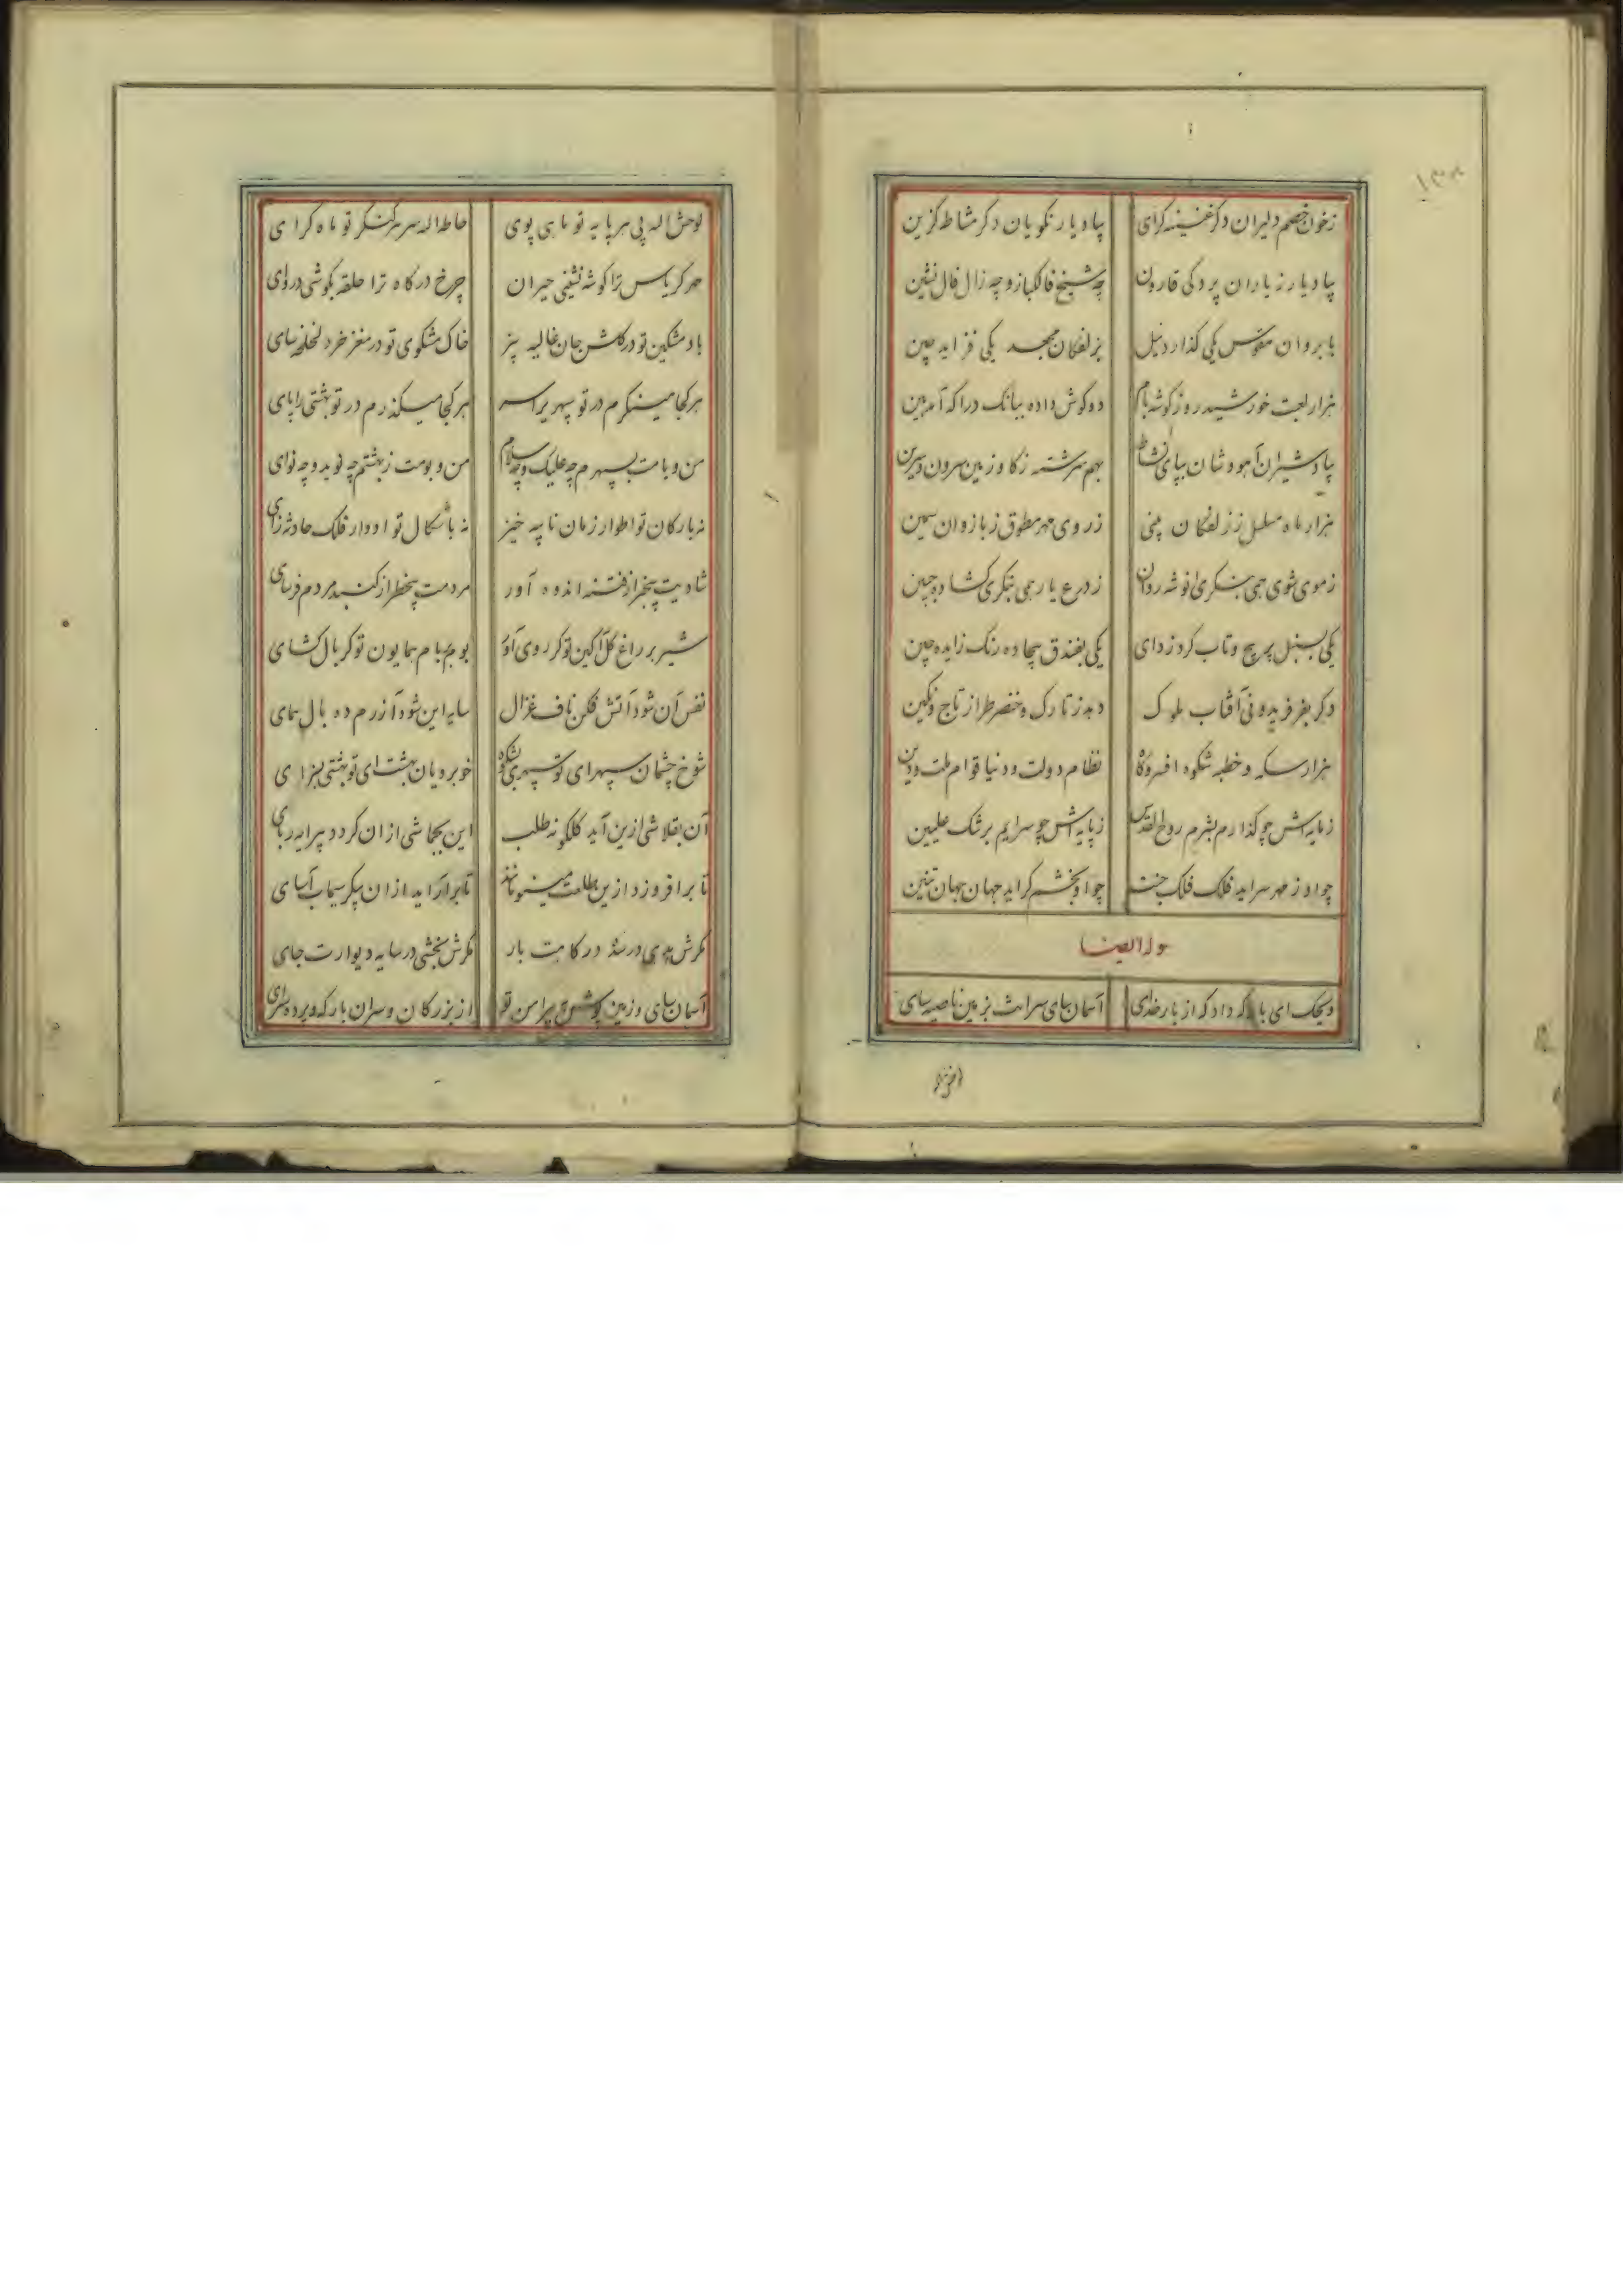 ۱۳۸
زخون خصم دلیران دکر غنیمه کرای بیاد یار نکویان دکر مشاط کزین
بیاد یار زیاران پردکی قارون چه شیخ فالکباز و چه زال فال نشین
بابروان مقوس یکی کذارد نیل بزلفکان مجعد یکی فزاید چین
هزار لعبت خورشید روز کوشه بام دو کوش داده ببانک درا که آمد این
بیاد شیران آهو وشان بپای نشاط بهم سرشته ز کاو زمین سرون و سرین
هزار ماه مسلسل ز زلفکان بینی ز روی مهر مطوق ز بازوان سیمن
زموی شوی همی بنکری انوشه روان ز درع یار همی بنکری کشاده جبین
یکی بسنبل پرپیچ و تاب کرد زدای یکی بفندق بیجاده رنک زاید چین
دکر بفر فریدونی آفتاب ملوک دهد ز تارک و خنصر طراز تاج و نکین
هزار سکه و خطبه شکوه افسر و کاه نظام دولت و دنیا قوام ملت و دین
زمایه اش چو کذارم بشرم روح القدس زپایه اش چو سرایم برشک علیین
چو او ز مهر سراید فلک فلک جنت چو او بخشم کراید جهان جهان تنین
وله ایضا
ویحک ای بارکه داد که از بار خدای آسمان سای سرانت بزمین ناصیه سای
اختر
لوحش اله پی هر پایه تو ماهی پوی حاطه اله سر هر کنکر تو ماه کرای
مهر کریاس ترا کوشه نشینی حیران چرخ درکاه ترا حلقه بکوشی دروای
باد مشکین تو در کلشن جان غالیه بیز خاک مشکوی تو در مغز خرد لخلخه سای
هر کجا مینکرم در تو سپهری سراسر هر کجا میکذرم در تو بهشتی راپای
من و بامت بسپهرم چه علیک و چه سلام من و بومت ز بهشتم چه نوید و چه نوای
نه بارکان تو اطوار زمان نایبه خیز نه باشکال تو ادوار فلک حادثه زای
شادیت بیخبر از فتنه اندوه آور مردمت بیخطر از کنبد مردم فرسای
شیر بر راغ کل آکین تو کر روی آورد بوم بر بام همایون تو کر بال کشای
نفس آن شود آتش فکن ناف غزال سایه این شود آزرم ده بال همای
شوخ چشمان سپهر ای تو سپهری بشکوه خوبرویان بهشت ای تو بهشتی بسزای
آن بقلاشی ازین آید کلکونه طلب این بجماشی از ان کردد پیرایه ربای
تا برافروزد ازین طلعت مینو مانند تا برآراید از ان پیکر سیماب آسای
کرش بدهی در سده درکاهت بار کرش بخشی در سایه دیوارت جای
آسمان سای و زمین پیرامن تو از بزرکان و سران بارکه و پرده سرای